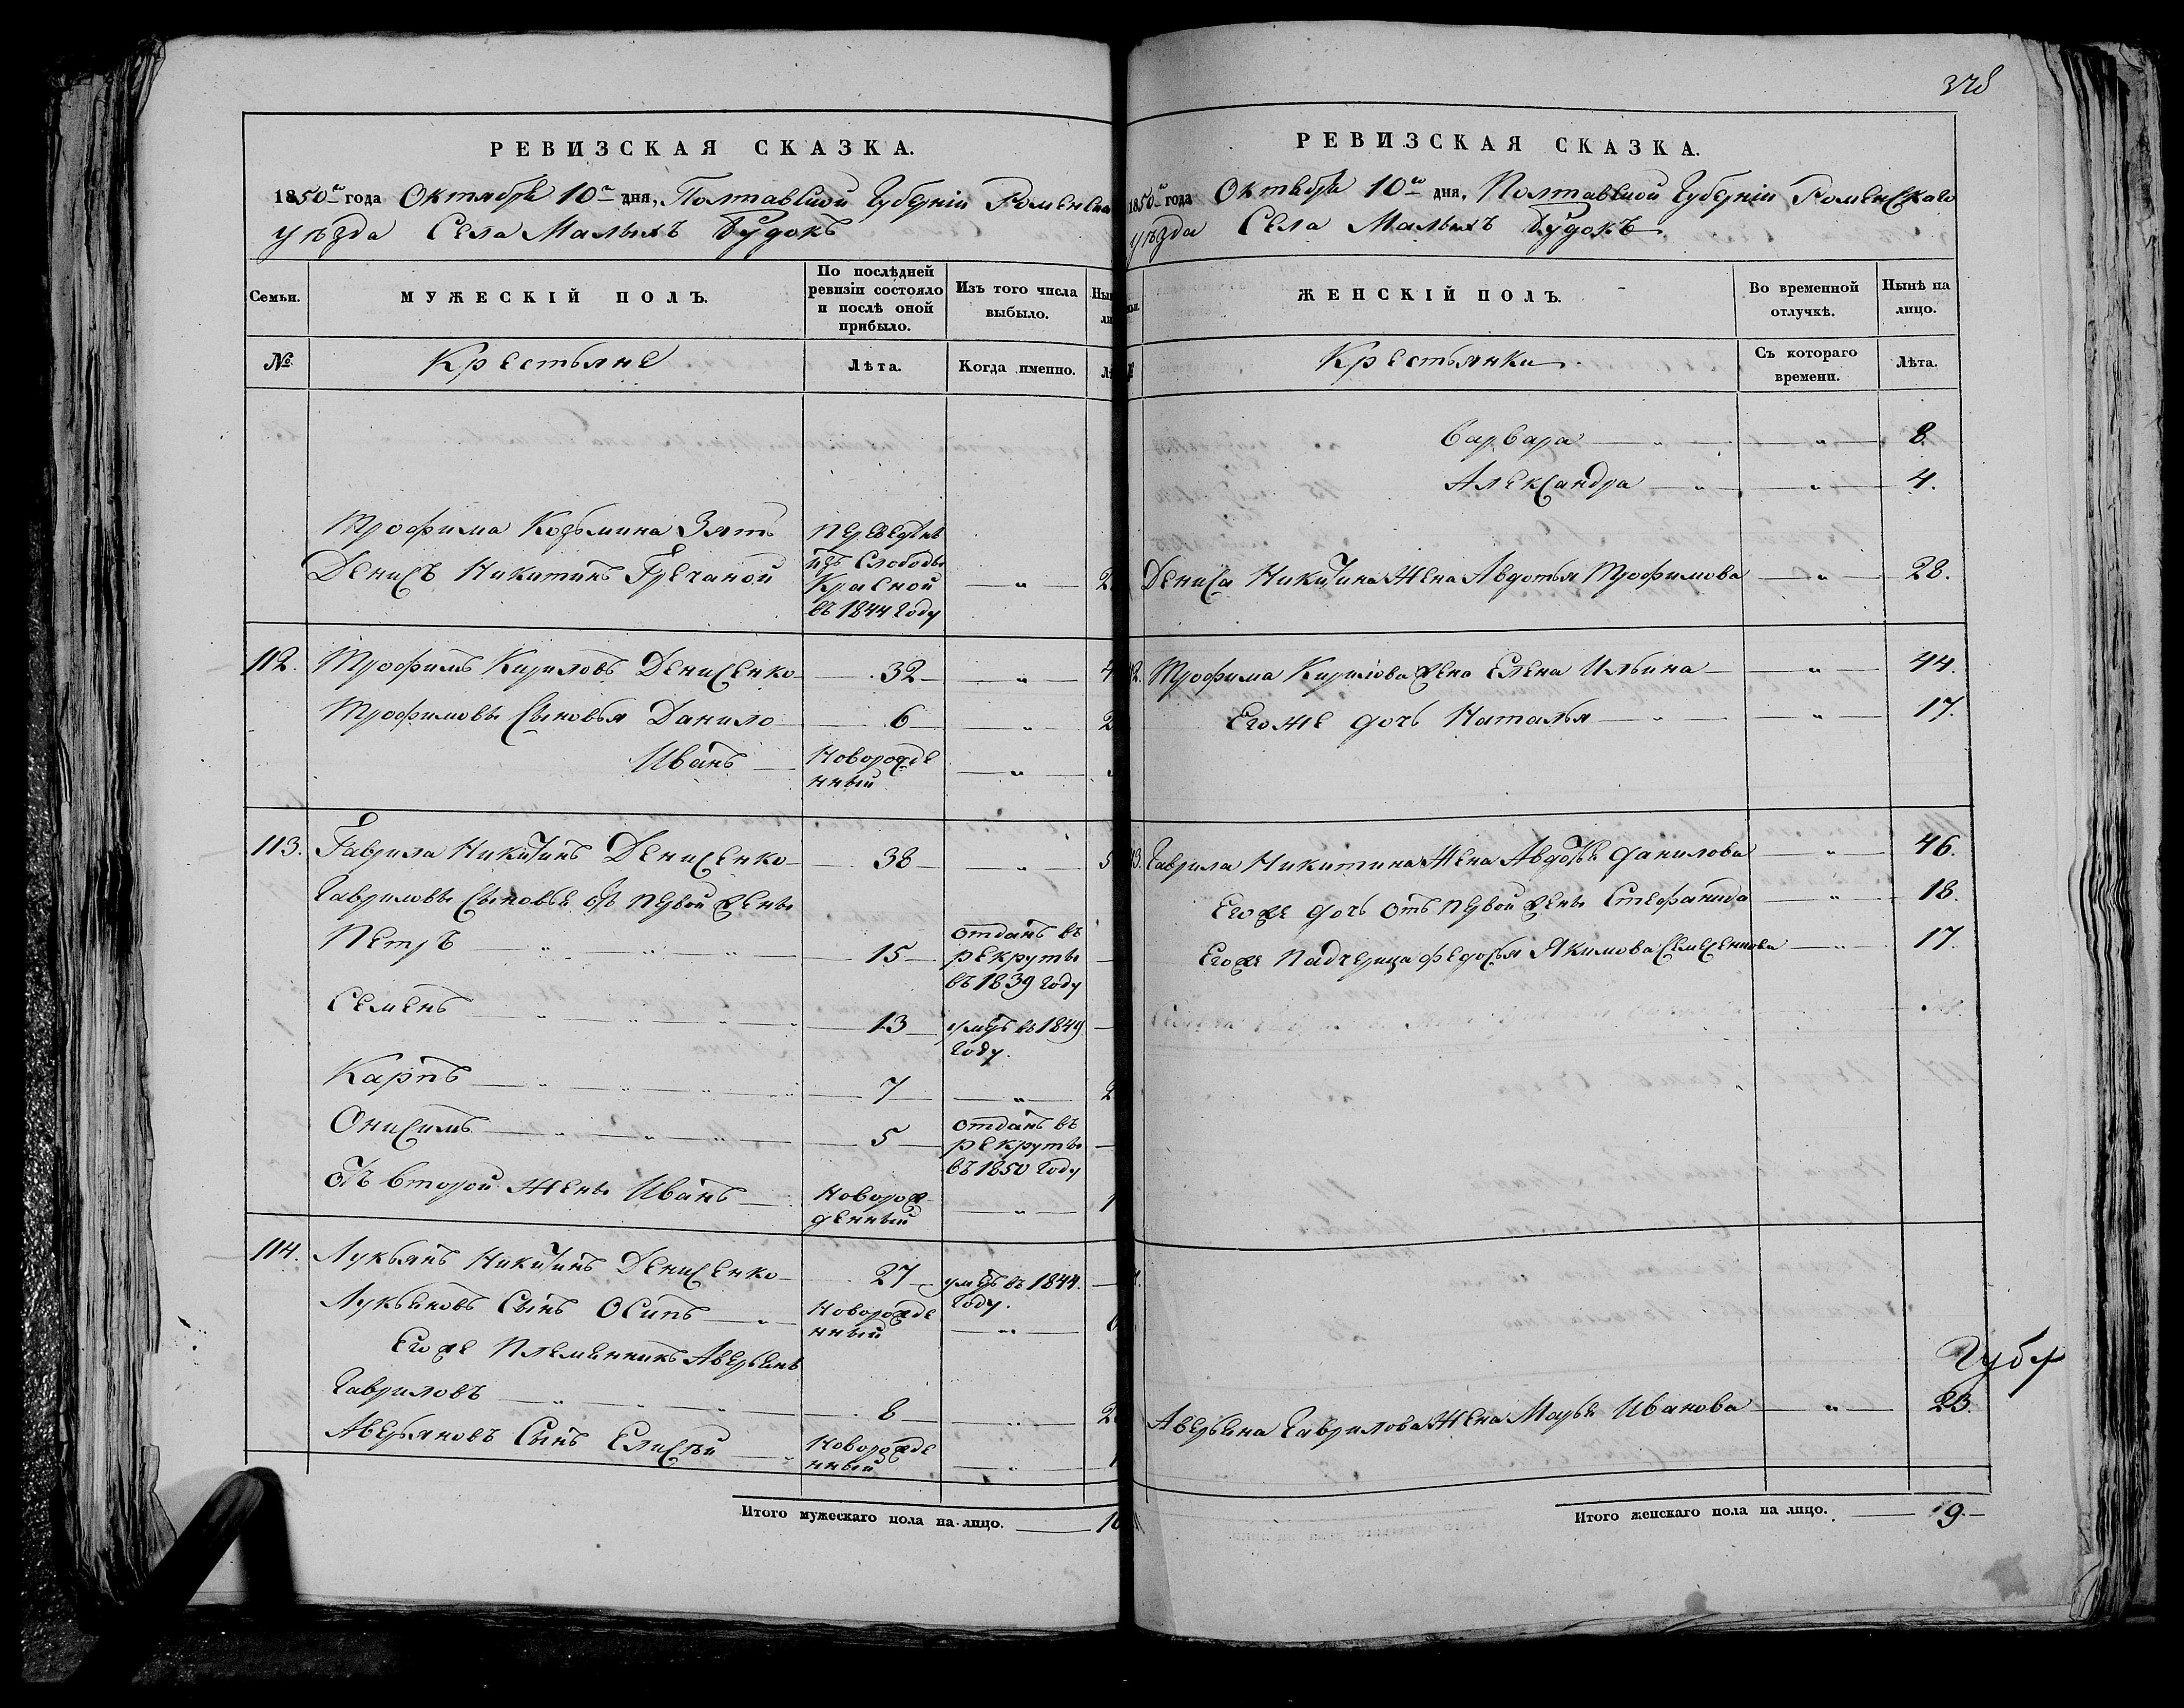 РЕВИЗСКАЯ СКАЗКА.
1850го года Октября 10го дня, Полтавской Губернии Роменска
уѣзда Села Малыхъ Будокъ
Семьи.
МУЖЕСКІЙ ПОЛЪ.
По послѣдней
ревизіи состояло
и послѣ оной
прибыло.
Изъ того числа
выбыло.
№
Крестьяне
Лѣта.
Когда именно.
Трофима Козьмина Зять
Денисъ Никитинъ Гречаной
Переведенъ
изъ Слободы
Красной
въ 1844 году
112. Трофимъ Кириловъ Денисенко 32
Трофимовы Сыновья Данило 6
Иванъ Новорожде
нный
113. Гаврила Никитинъ Денисенко 38
Гавриловы Сыновья отъ первой жены
Петръ 15
отданъ въ
рекруты
въ 1839 году
Семенъ 13 умеръ въ 1849
году.
Карпъ 7
Онисимъ 5
отданъ въ
рекруты
въ 1850 году
отъ второй жены Иванъ Новорож
денный
114. Лукьянъ Никитинъ Денисенко 27 умеръ въ 1844.
году.
Лукьяновъ Сынъ Осипъ Новорожде
нный
Егоже Племянникъ Аверьянъ
Гавриловъ 8
Аверьяновъ Сынъ Елисѣй Новорожде
нный
Итого мужескаго пола на лицо.
328
РЕВИЗСКАЯ СКАЗКА.
1850го года Октября 10го дня, Полтавской Губернии Роменскаго
уѣзда Села Малыхъ Будокъ
ЖЕНСКІЙ ПОЛЪ.
Во временной
отлучкѣ.
Нынѣ на
лицо.
Крестьянки
Съ котораго
времени.
Лѣта.
Варвара 8.
Александра 4.
Дениса Никитина Жена Авдотья Трофимова 28.
Трофима Кирилова жена Елена Ильина 44.
Егоже дочь Наталья 17.
Гаврила Никитина Жена Авдотья Данилова 46.
Егоже дочь отъ первой жены Стефанида 18.
Егоже Падчерица Федосья Якимова 17.
Аверьяна Гаврилова Жена Марья Иванова 23.
Итого женскаго пола на лицо. 9.